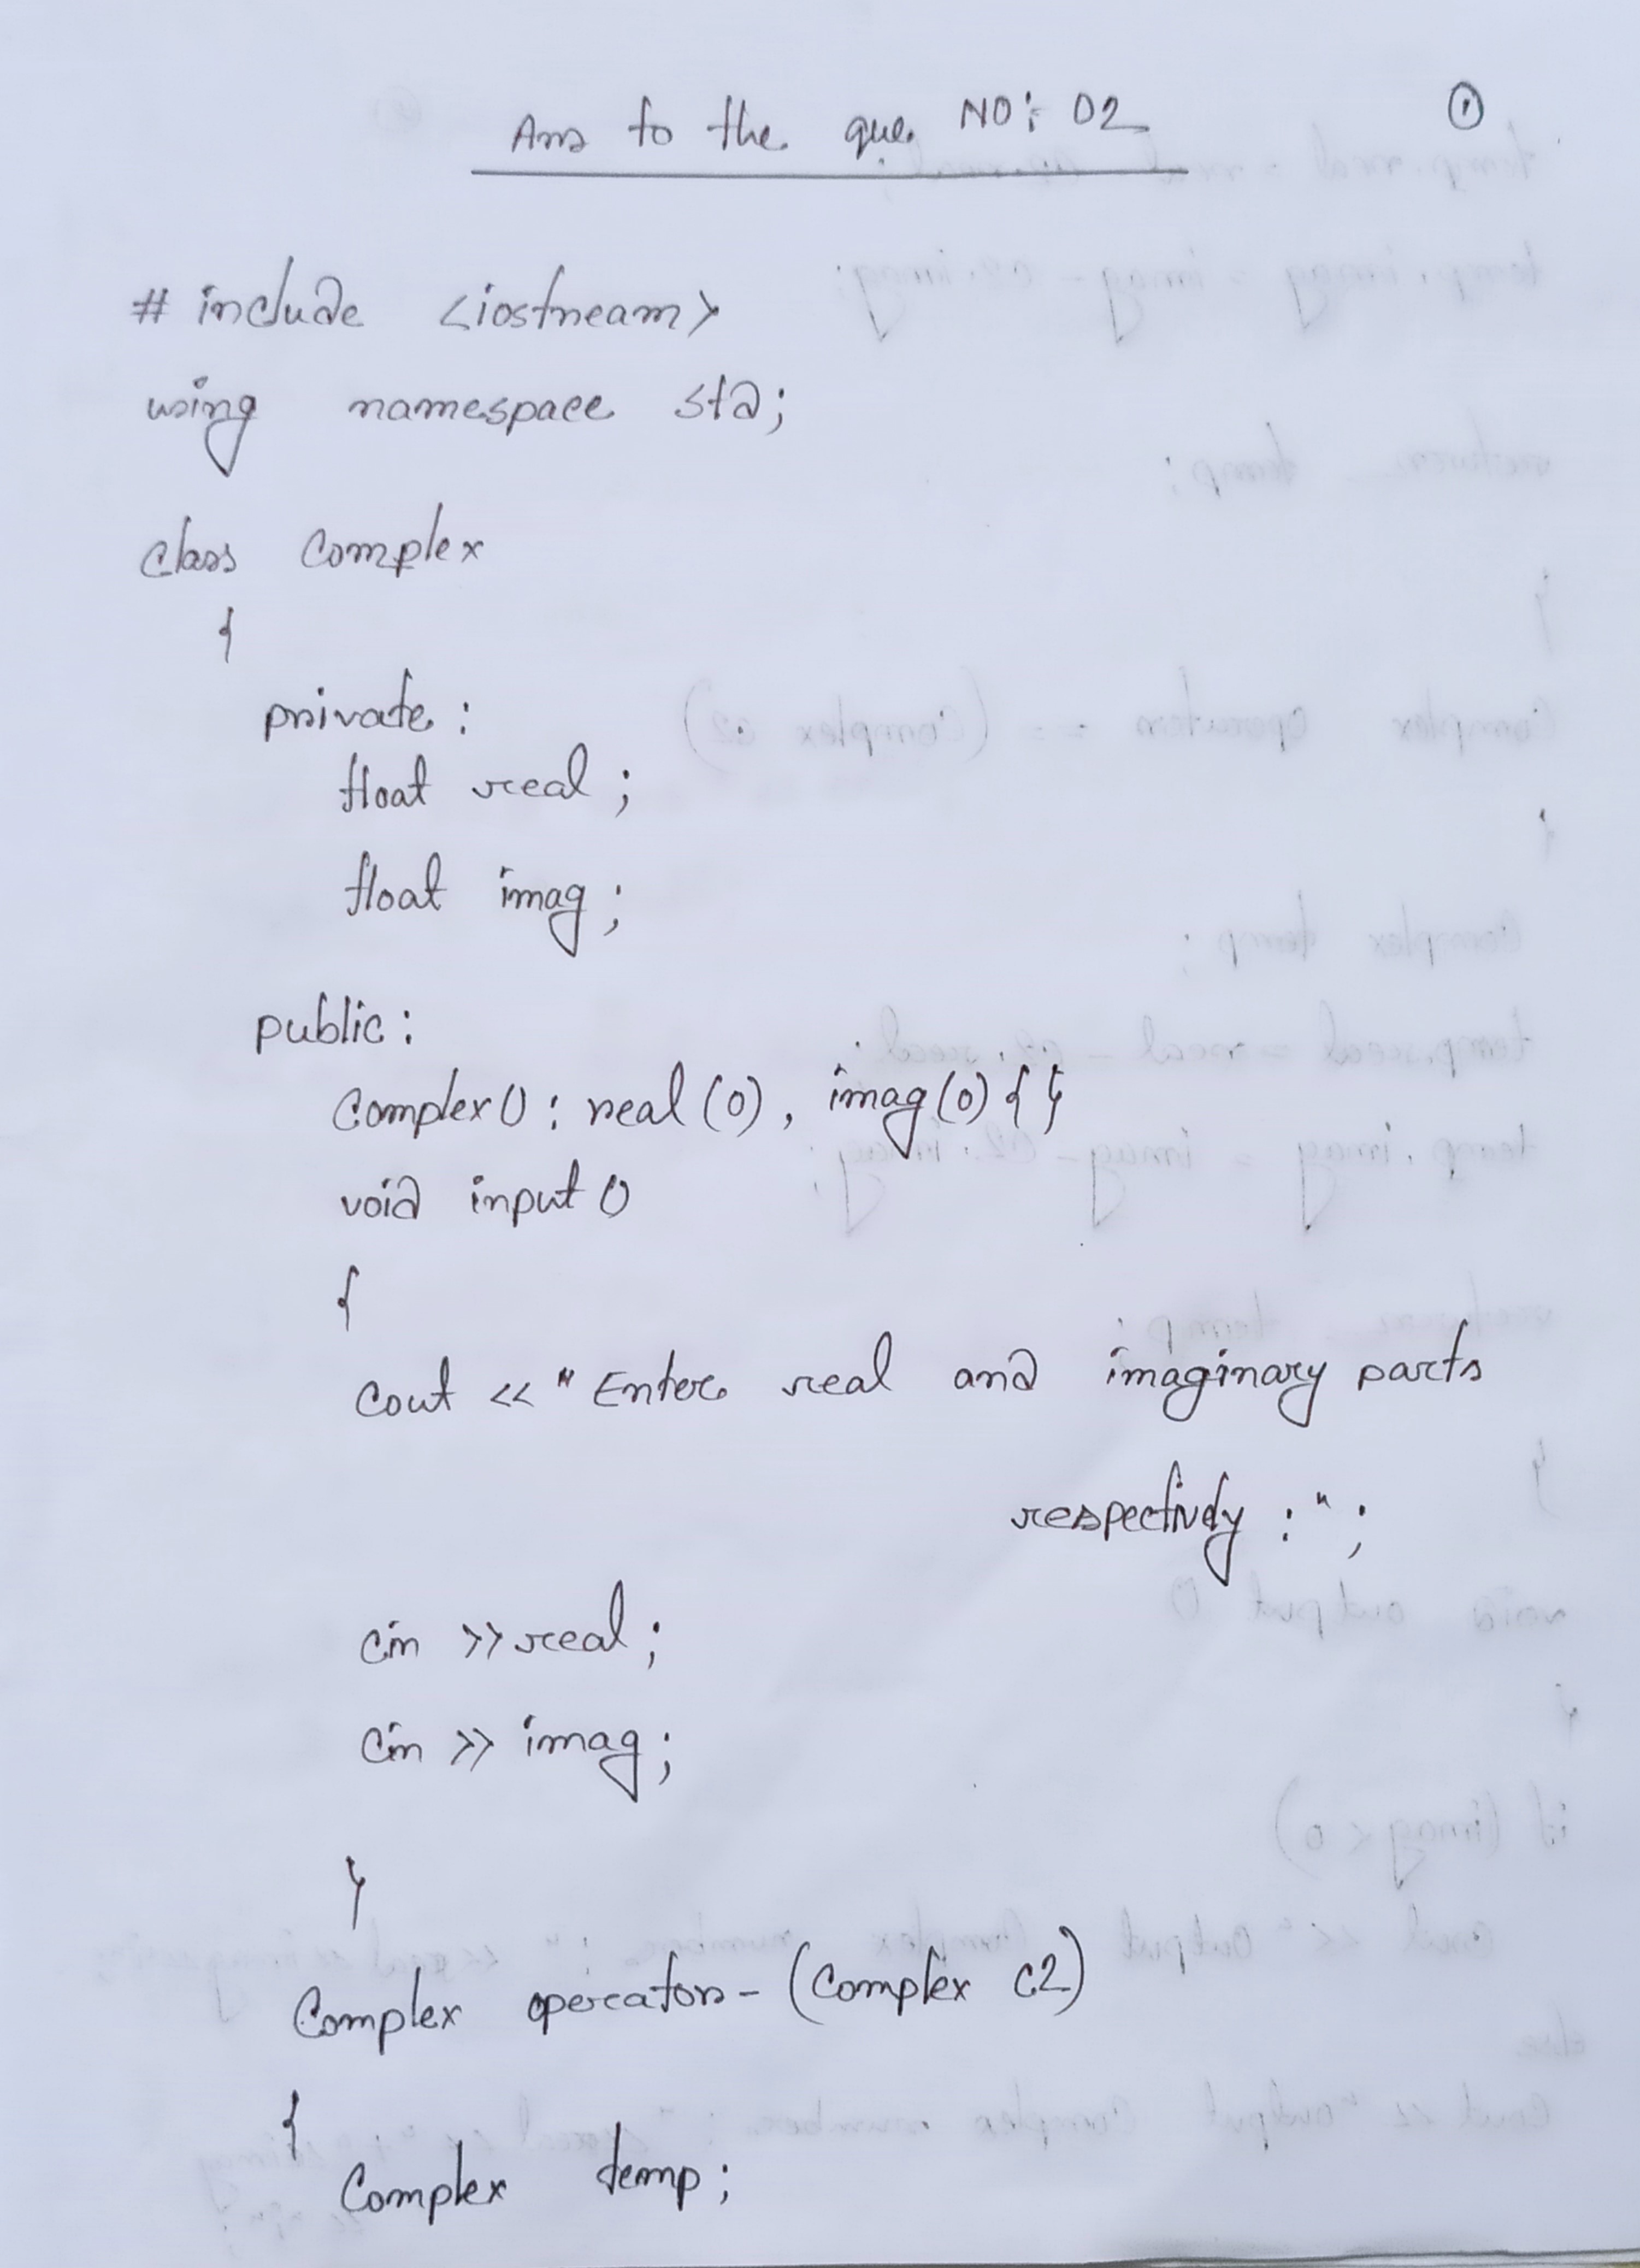 Ans to the que. NO: 02
1
# include <iostream>
using namespace std;
class Complex
{
private :
float real ;
float imag ;
public :
Complex() : real (0), imag (0) { }
void input ()
{
cout << " Enter real and imaginary parts
respectively : " ;
cin >> real ;
cin >> imag ;
}
Complex operator - (Complex c2)
{
Complex temp ;